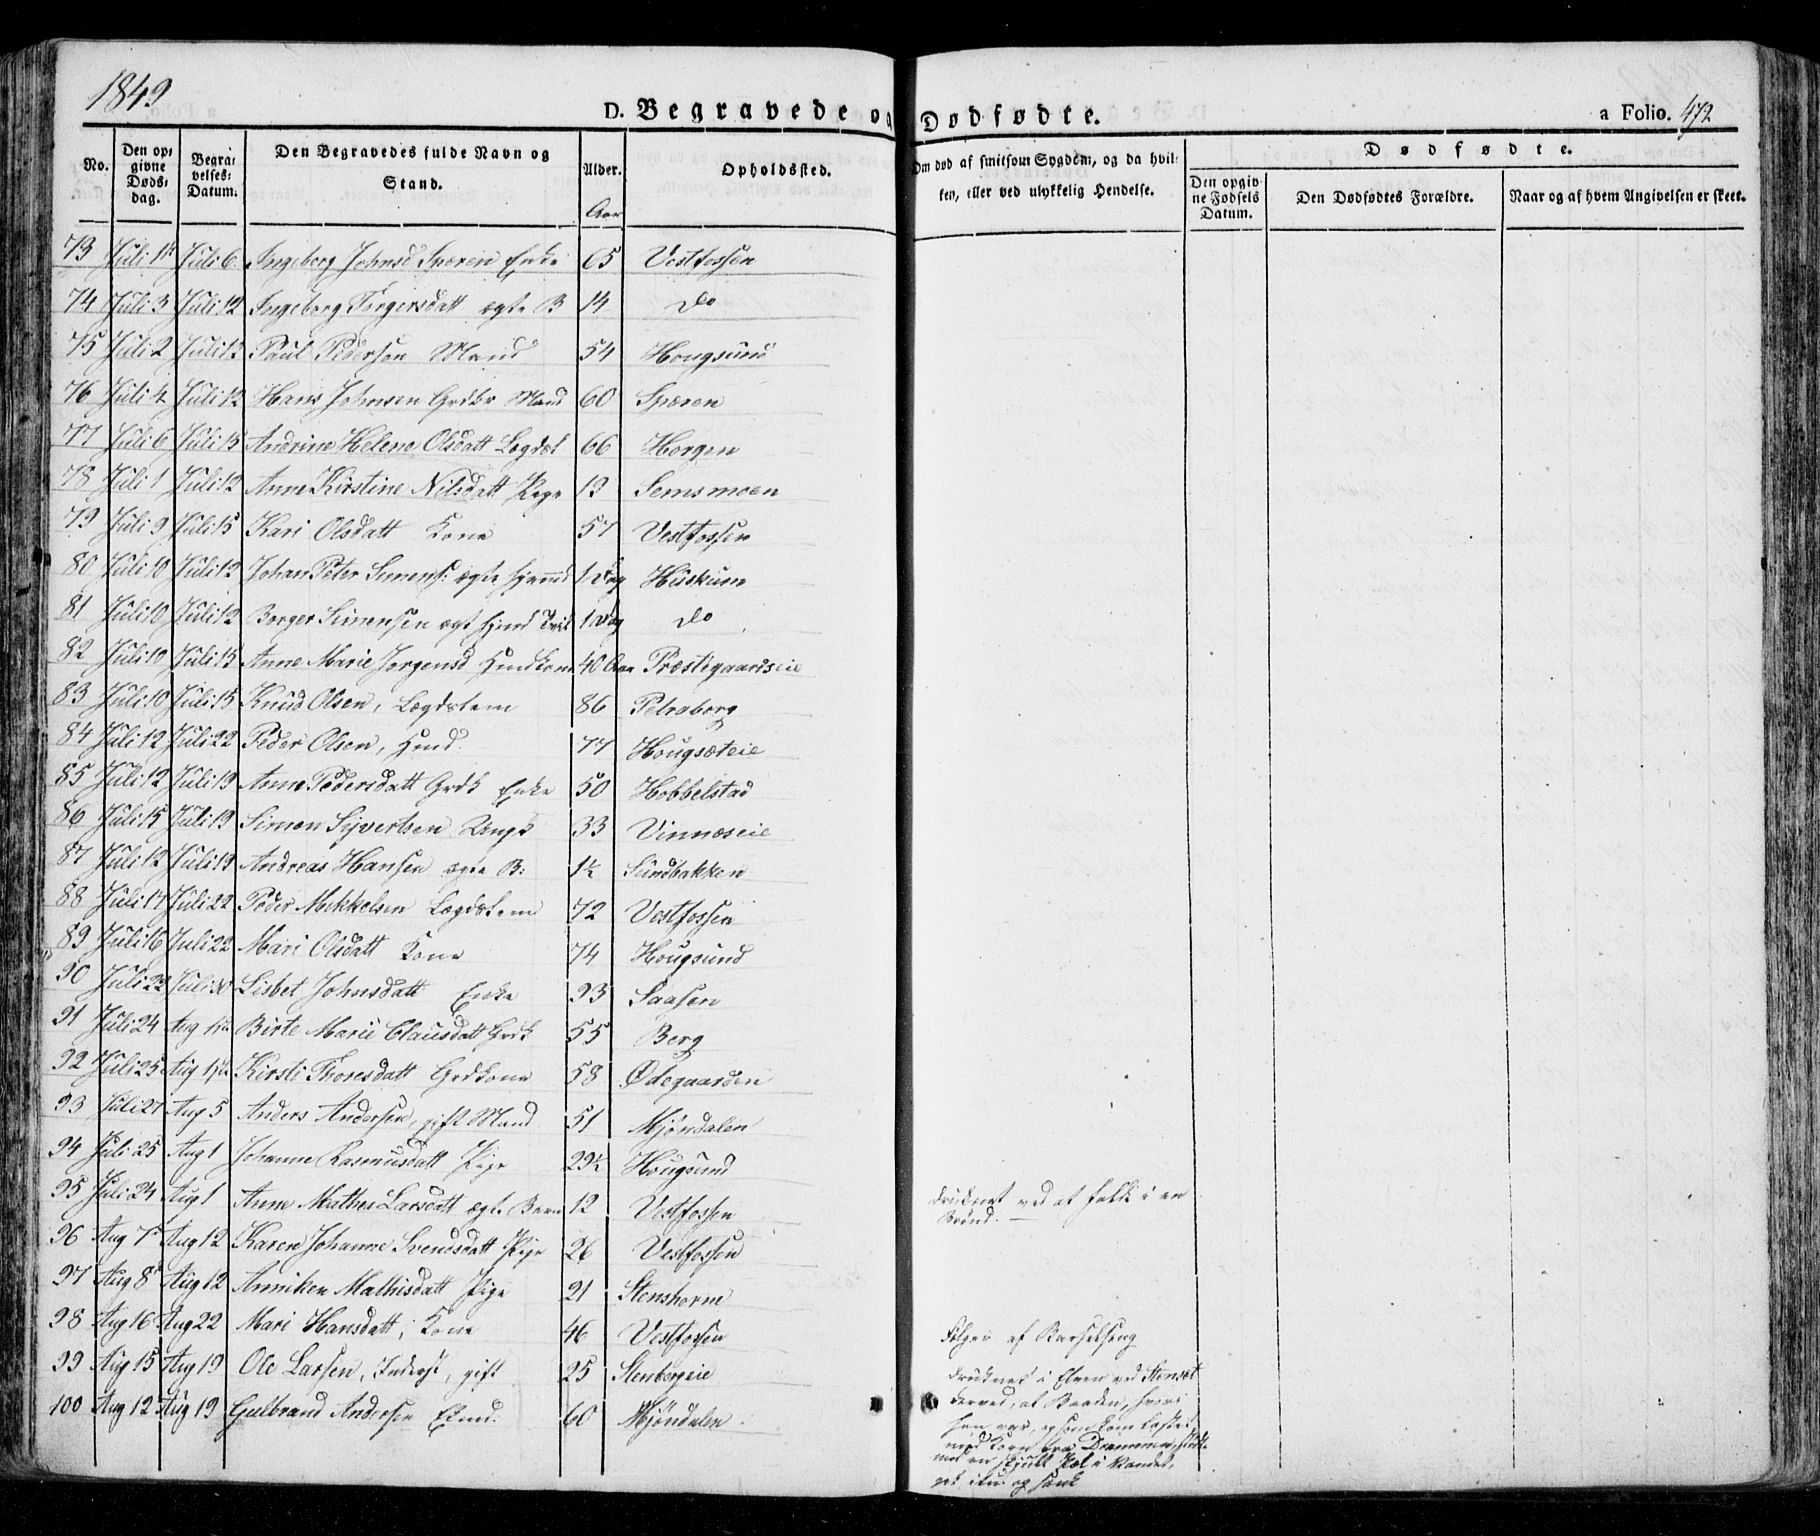 1849
D. Begravede og Dødfødte.
a Folio. 472
No.
Den opgivne Døds-dag.
Begravelses-Datum.
Den Begravedes fulde Navn og Stand.
Alder.
Opholdssted.
Om død af smitsom Sygdom, og da hvilken, eller ved ulykkelig Hendelse.
Dødfødte.
Den opgivne Fødsels Datum.
Den Dødfødtes Forældre.
Naar og af hvem Angivelsen er skeet.
Aar
73 Juli 1ste Juli 6 Ingeborg Johnsd Spæren Enke 65 Vestfossen
74 Juli 3 Juli 12 Ingeborg Torgersdatt ægte B 14 Do
75 Juli 2 Juli 12 Paul Pedersen Mand 54 Hougsund
76 Juli 4 Juli 12 Hans Johnsen Grdbr Mand 60 Spæren
77 Juli 6 Juli 15 Andrine Helene Olsdatt Lægdsl 66 Horgen
78 Juli 1 Juli 12 Anne Kirstine Nilsdatt Pige 19 Semsmoen
79 Juli 9 Juli 15 Kari Olsdatt Kone 57 Vestfossen
80 Juli 10 Juli 12 Johan Peter Simens: ægte 1 Dag Huskum
81 Juli 10 Juli 12 Borger Simensen ægt 1 Dag Do
82 Juli 10 Juli 15 Anne Marie Jorgensd Husmdkone 40 Aar Præstegaardseie
83 Juli 10 Juli 15 Knud Olsen, Lægdslem 86 Petraborg
84 Juli 12 Juli 22 Peder Olsen, Husmd 77 Hougsæteie
85 Juli 12 Juli 19 Anne Pedersdatt Grdk Enke 50 Hobbelstad
86 Juli 15 Juli 19 Simen Syvertsen Ungk 33 Vinnæseie
87 Juli 12 Juli 19 Andreas Hansen ægte B: 1½ Sundbakken
88 Juli 17 Juli 22 Peder Mikkelsen Lægdslem 72 Vestfossen
89 Juli 16 Juli 22 Mari Olsdatt Kone 74 Hougsund
90 Juli 22 Juli 30 Lisbet Johnsdatt Enke 93 Saasen
91 Juli 24 Aug 1ste Birte Marie Clausdatt Grdk 55 Berg
92 Juli 25 Aug 1ste Kirsti Thoresdatt Grdkone 58 Ødegaarden
93 Juli 27 Aug 5 Anders Andersen, gift Mand 51 Mjöndalen
94 Juli 25 Aug 1 Johanne Rasmusdatt Pige 29½ Hougsund
95 Juli 24 Aug 1 Anne Mathea Larsdatt ægte Barn 12 Vestfossen druknet ved at falde i en
Brønd.
96 Aug 7 Aug 12 Karen Johanne Svendsdatt Pige 26 Vestfossen
97 Aug 8 Aug 12 Anniken Mathisdatt Pige 21 Stenshorne
98 Aug 16 Aug 22 Mari Hansdatt, Kone 46 Vestfossen Følger af Barselseng
99 Aug 15 Aug 19 Ole Larsen, Inderst, gift 25 Stenbergeie druknet i Elven ved Stenset
derved, at Baaden, hvori
100 Aug 12 Aug 19 Gulbrand Andersen 60 Mjöndalen
han var, og som kom lastet
med Korn fra Drammen,
en skjult Pæl i Vandet,
og sank